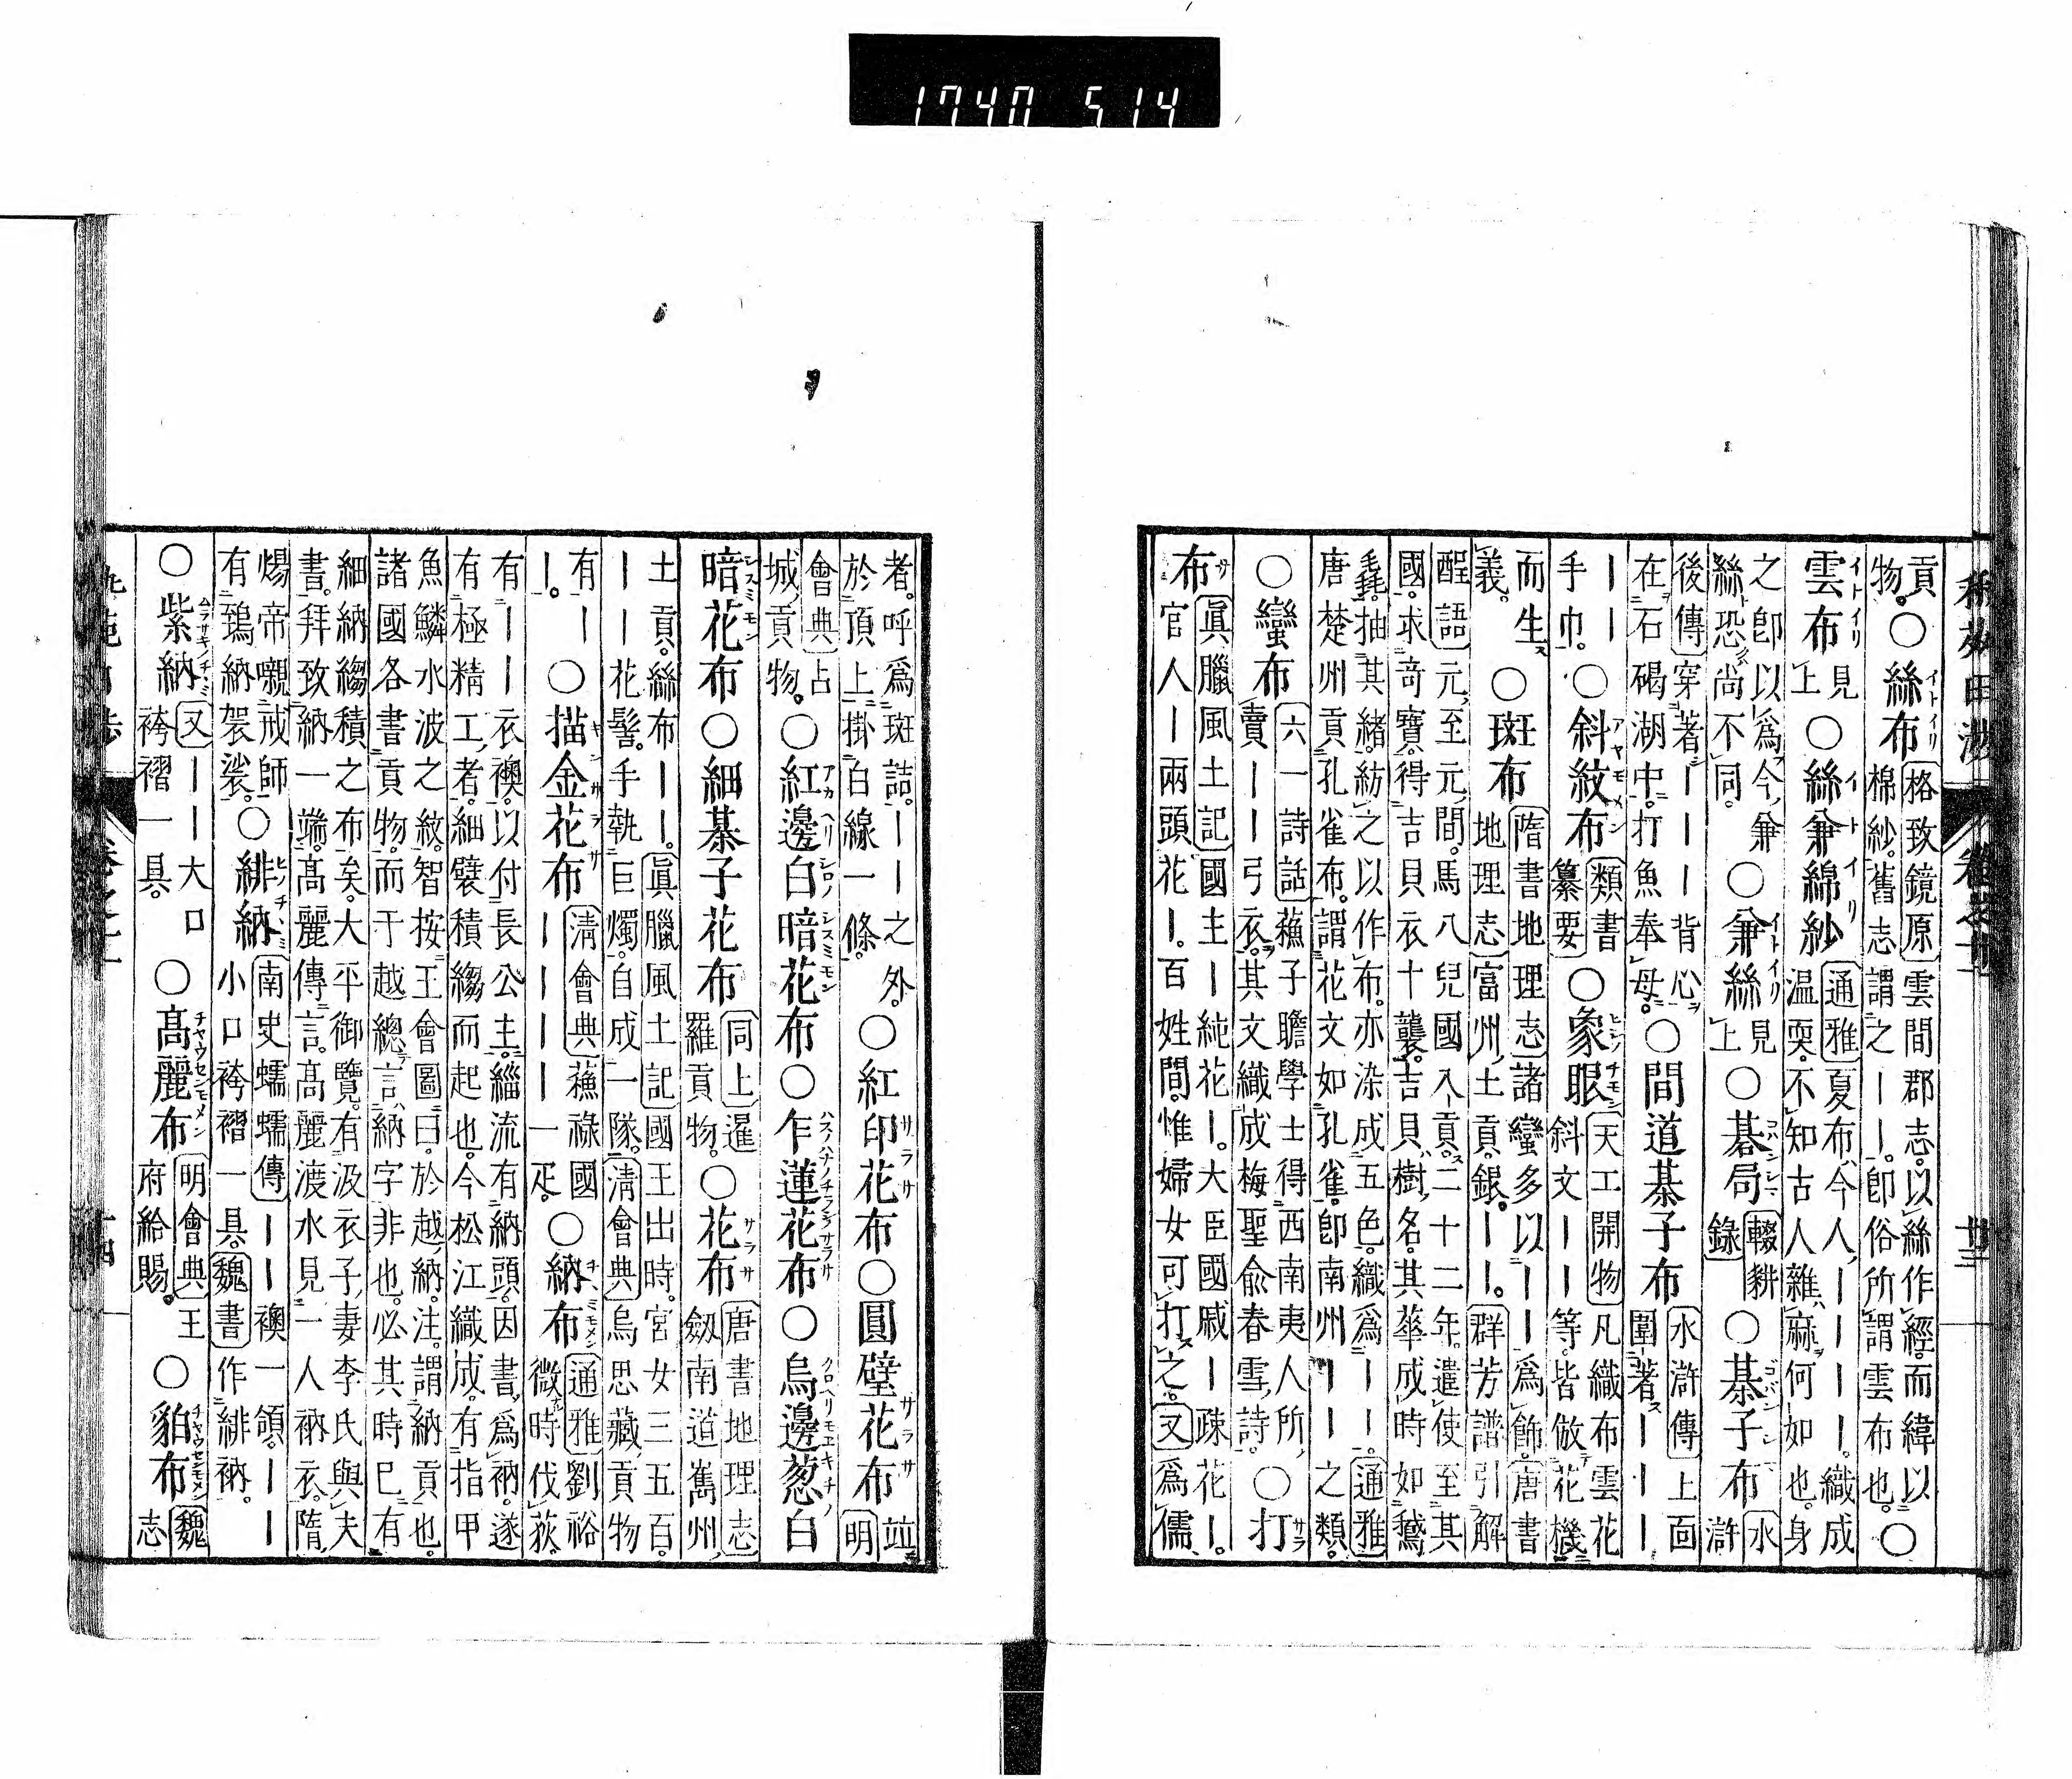 1740 514
貢物。○絲布イトイリ 格致鏡原 雲間郡志。以絲作經。而緯以棉紗。舊志謂之――。卽俗所謂雲布也。○
雲布イトイリ 見上 ○絲兼綿紗イトイリ 通雅 夏布、今人、――――。織成温耎。不知古人雜麻何如也。身
之卽以爲今兼絲恐尚不同。 ○兼絲イトイリ 見上 ○碁局 輟耕錄 ○棊子布 水滸
後傳 穿著――――背心在石碣湖中。打魚奉母。 ○間道棊子布 水滸傳 上面圍著――
――手巾。 ○斜紋布アヤモメン 類書纂要 ○象眼 天工開物 凡織布雲花斜文――等。皆倣花機
而生義。 ○斑布 隋書地理志 諸蠻多以――爲飾。唐書地理志 富州、土貢。銀――。群芳譜引解
酲語 元、至元、間。馬八兒國入貢。二十二年。遣使至其國。求奇寶。得吉貝衣十襲。吉貝、樹、名。其華成時如鵞
毳抽其緒。紡之以作布。亦染成五色。織爲――。通雅 唐楚州貢孔雀布。謂花文如孔雀。卽南州――之類。
○蠻布 六一詩話 蘓子瞻學士得西南夷人所賣――弓衣。其文織成梅聖兪春雪、詩。 ○打サラ
布サ 眞臘風土記 國主―純花―。大臣國戚―疎花―。官人―兩頭花―。百姓間。惟婦女可打之。又 爲儒
者。呼爲斑詰。――之外。於頂上掛白線一條。 ○紅印花布サラサ ○圓璧花布サラサ 竝明
會典 占城、貢物。 ○紅邊白暗花布 ○乍蓮花布 ○烏邊葱白
暗花布 ○細棊子花布 同上 暹羅貢物。 ○花布サラサ 唐書地理志 劔南道嶲州、
土貢。絲布――。眞臘風土記 國王出時。宮女三五百。――花髻。手執巨燭。自成一隊。淸會典 烏思藏、貢物
有――。 ○描金花布キンサラサ 淸會典 蘓祿國――――一疋。 ○納布 通雅 劉裕微時伐荻。
有――衣襖。以付長公主。緇流有納頭。因書、爲衲。遂有極精工、者。細襞積縐而起也。今松江織成。有指甲
魚鱗水波之紋。智按王會圖曰。於越、納。注。謂納貢也。諸國各書貢物。而于越總言納字非也。必其時已有
細納縐積之布矣。大平御覽。有汲衣子、妻李氏與夫書。拜致納一端。髙麗傳。言。髙麗漉水見一人衲衣。隋
煬帝嚫戒師有鵶納袈裟。 ○緋納 南史蠕蠕傳 ――襖一領。――小口袴褶一具。魏書 作緋衲。
○紫納 又 ――大口袴褶一具。 ○髙麗布チヤウセンモメン 明會典 王府給賜。 ○貃布チヤウセンモメン 魏志